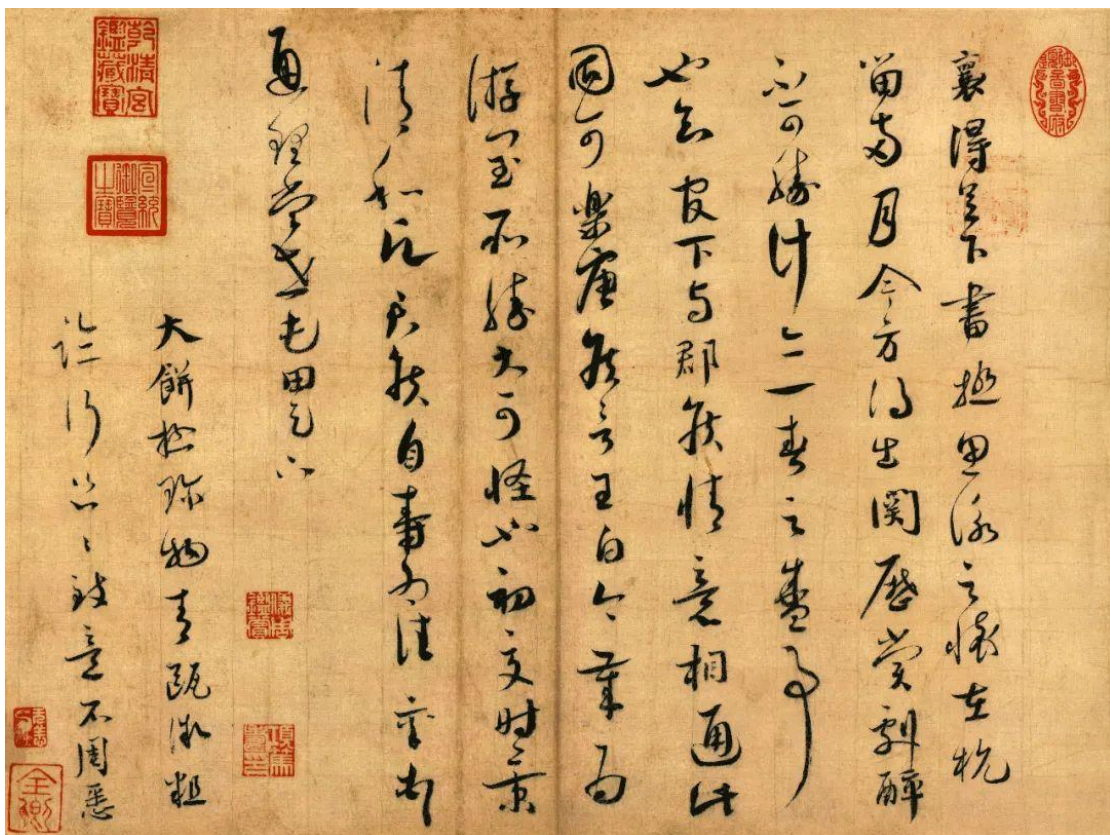 襄得足下書極思詠之懷在杭
留兩月今方得出関歷賞劇醉
不可勝計亦一春之盛事
也知官下与郡侯情意相通此
固可樂唐侯言王白今歲為
游閏所勝大可怪也初夏時景
清和願君侯自壽為佳襄頓首
通理當世屯田足下
大餅極珍物青甌微粗
臨行匆匆致意不周悉
乾清宮鑑藏寶
宣統御覽之寶